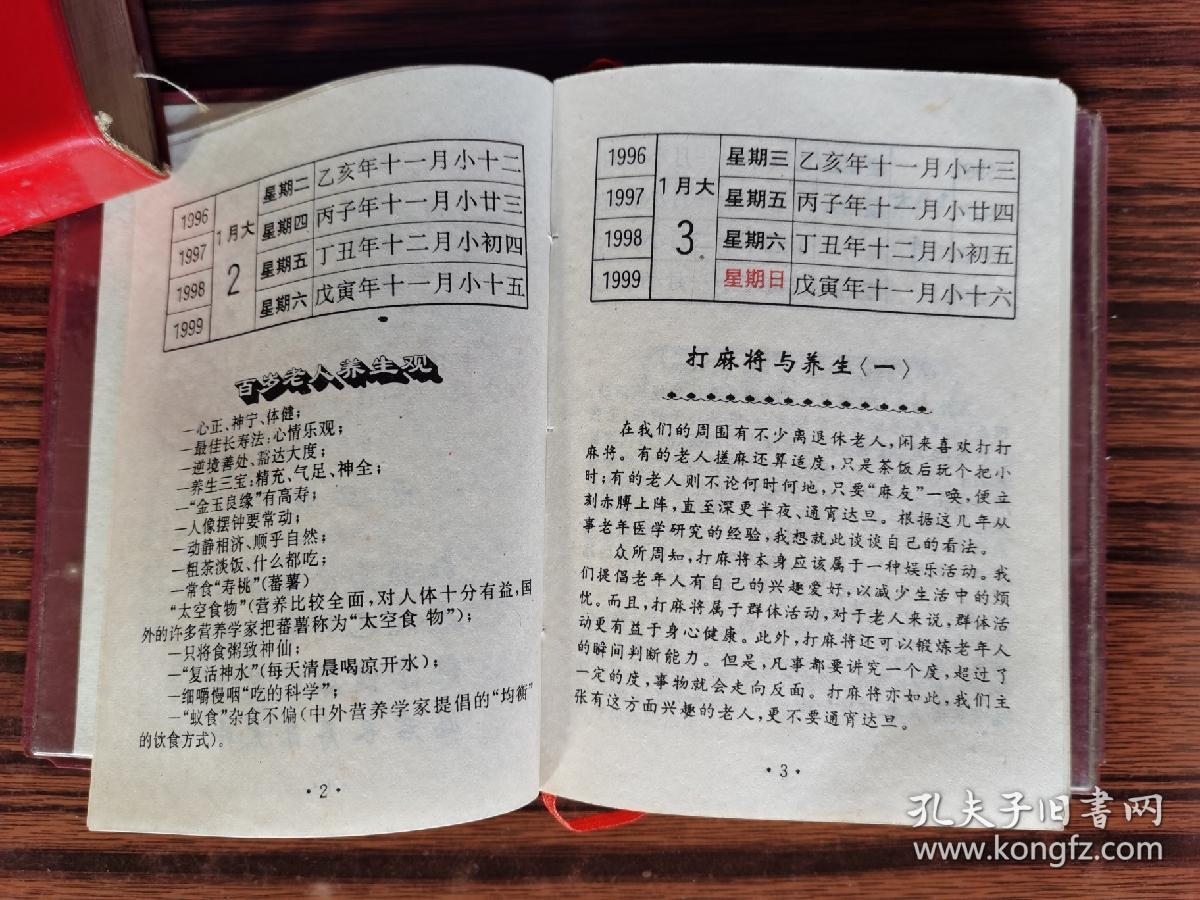 1996 1月大 2 星期二 乙亥年十一月小十二
1997 星期四 丙子年十一月小廿三
1998 星期五 丁丑年十二月小初四
1999 星期六 戊寅年十一月小十五
百岁老人养生观
—心正、神宁、体健；
—最佳长寿法：心情乐观；
—逆境善处、豁达大度；
—养生三宝：精充、气足、神全；
—“金玉良缘”有高寿；
—人像摆钟要常动；
—动静相济、顺乎自然；
—粗茶淡饭、什么都吃；
—常食“寿桃”（蕃薯）
“太空食物”（营养比较全面，对人体十分有益，国
外的许多营养学家把蕃薯称为“太空食 物”）；
—只将食粥致神仙；
—“复活神水”（每天清晨喝凉开水）；
—细嚼慢咽“吃的科学”；
—“蚁食”杂食不偏（中外营养学家提倡的“均衡”
的饮食方式）。
·2·
1996 1月大 3 星期三 乙亥年十一月小十三
1997 星期五 丙子年十一月小廿四
1998 星期六 丁丑年十二月小初五
1999 星期日 戊寅年十一月小十六
打麻将与养生〈一〉
在我们的周围有不少离退休老人，闲来喜欢打打
麻将。有的老人搓麻还算适度，只是茶饭后玩个把小
时；有的老人则不论何时何地，只要“麻友”一唤，便立
刻赤膊上阵，直至深更半夜、通宵达旦。根据这几年从
事老年医学研究的经验，我想就此谈谈自己的看法。
众所周知，打麻将本身应该属于一种娱乐活动。我
们提倡老年人有自己的兴趣爱好，以减少生活中的烦
忧。而且，打麻将属于群体活动，对于老人来说，群体活
动更有益于身心健康。此外，打麻将还可以锻炼老年人
的瞬间判断能力。但是，凡事都要讲究一个度，超过了
一定的度，事物就会走向反面。打麻将亦如此，我们主
张有这方面兴趣的老人，更不要通宵达旦。
·3·
孔夫子旧书网
www.kongfz.com